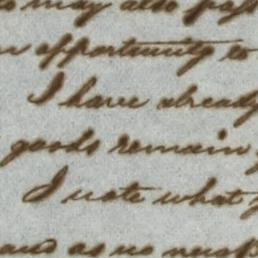 may also pass
opportunity to
I have already
goods remain
I note what
and as no